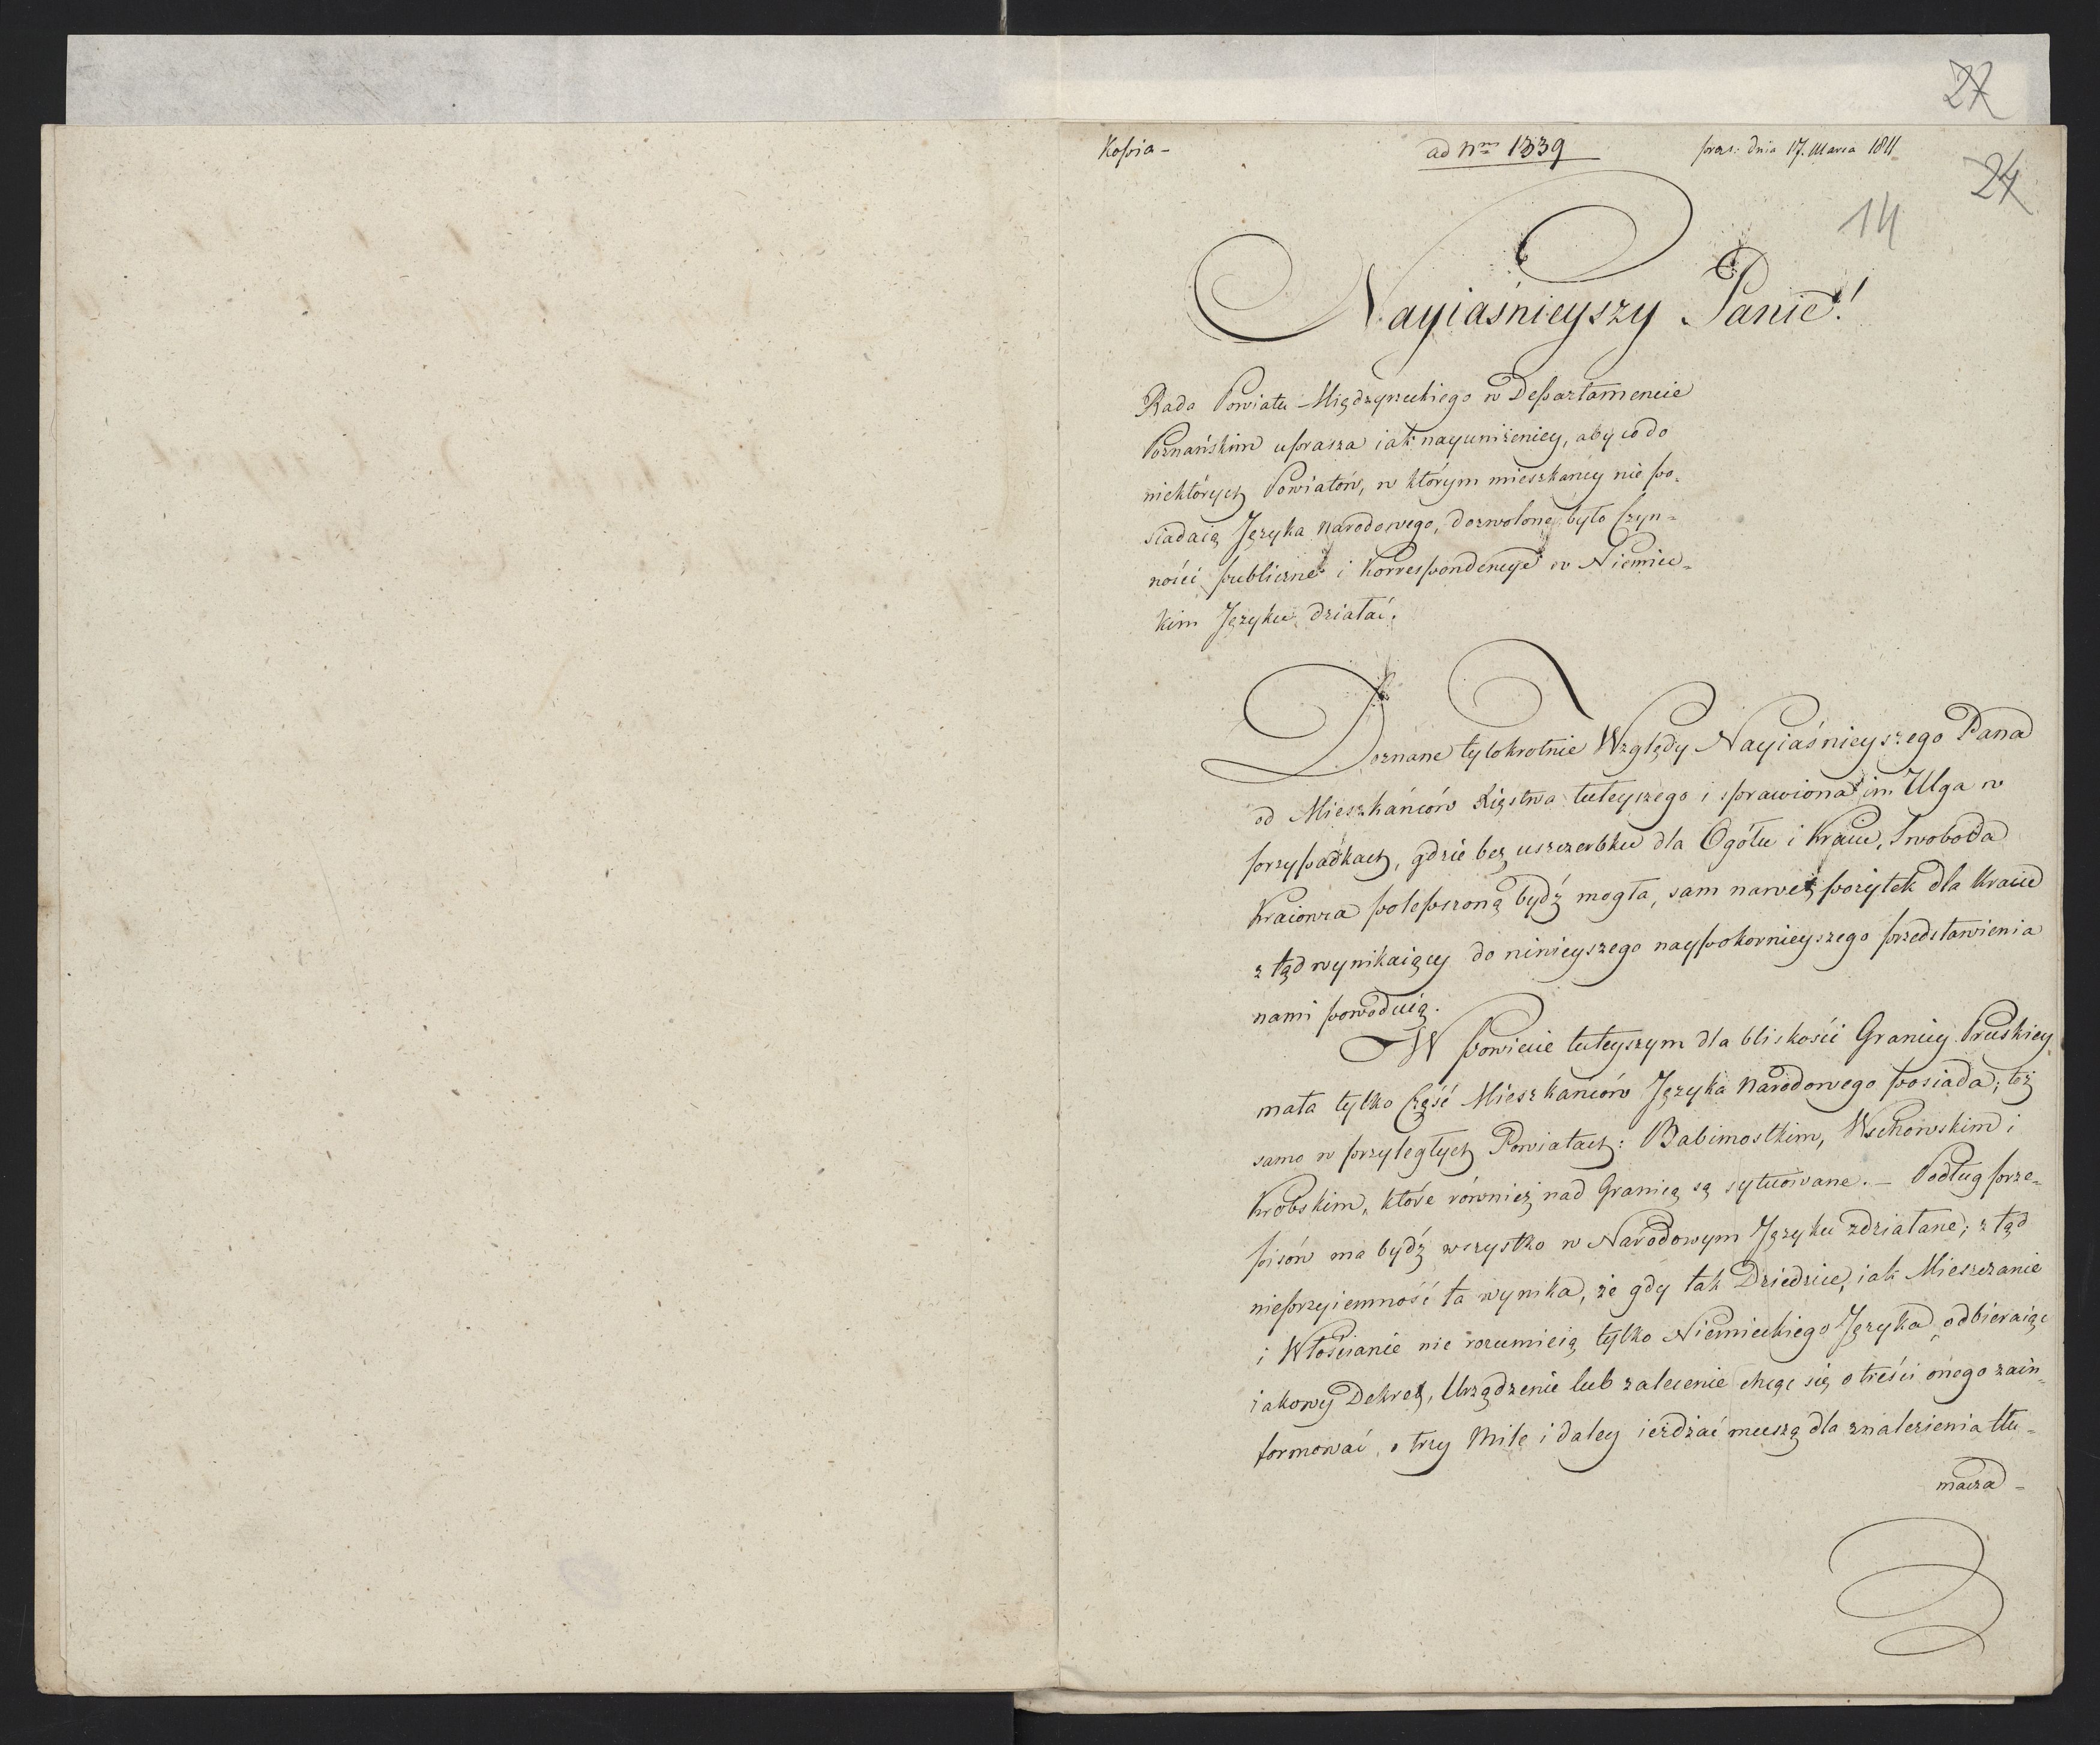 27
Kopia -
ad Nrm 1339
praes: dnia 17. Marca 1811
24
14
Nayiaśnieyszy Panie!
Rada Powiatu Międzyrzeckiego w Departamencie
Poznańskim uprasza iak nayuniżeniey, aby co do
niektórych Powiatów, w którym mieszkańcy nie po-
siadaią Języka Narodowego, dozwolone było Czyn-
ności publiczne i Korrespondencye w Niemiec-
kim Języku działać.
Doznane tylokrotnie Względy Nayiaśnieyszego Pana
od Mieszkańców Xięstwa tuteyszego i sprawiona im Ulga w
przypadkach, gdzie bez uszczerbku dla Ogółu i Kraiu, Swoboda
Kraiowa polepszoną bydź mogła, sam nawet pożytek dla Kraiu
z tąd wynikaiący do ninieyszego naypokornieyszego przedstawienia
nami powoduią.
W Powiecie tuteyszym dla bliskości Granicy Pruskiey
mała tylko Część Mieszkańców Języka Narodowego posiada; toż
samo w przyległych Powiatach: Babimostkim, Wschowskim i
Krobskim, które również nad Granicą są sytuowane. - Podług prze-
pisów ma bydź wszystko w Narodowym Języku zdziałane; z tąd
nieprzyiemność ta wynika, że gdy tak Dziedzice, iak Mieszczanie
i Włościanie nie rozumieią tylko Niemieckiego Języka, odbieraiąc
iakowy Dekret, Urządzenie lub zalecenie chcąc się o treści onego zain-
formować, o trzy Mile i daley ieździać muszą dla znalezienia tłu-
macza -